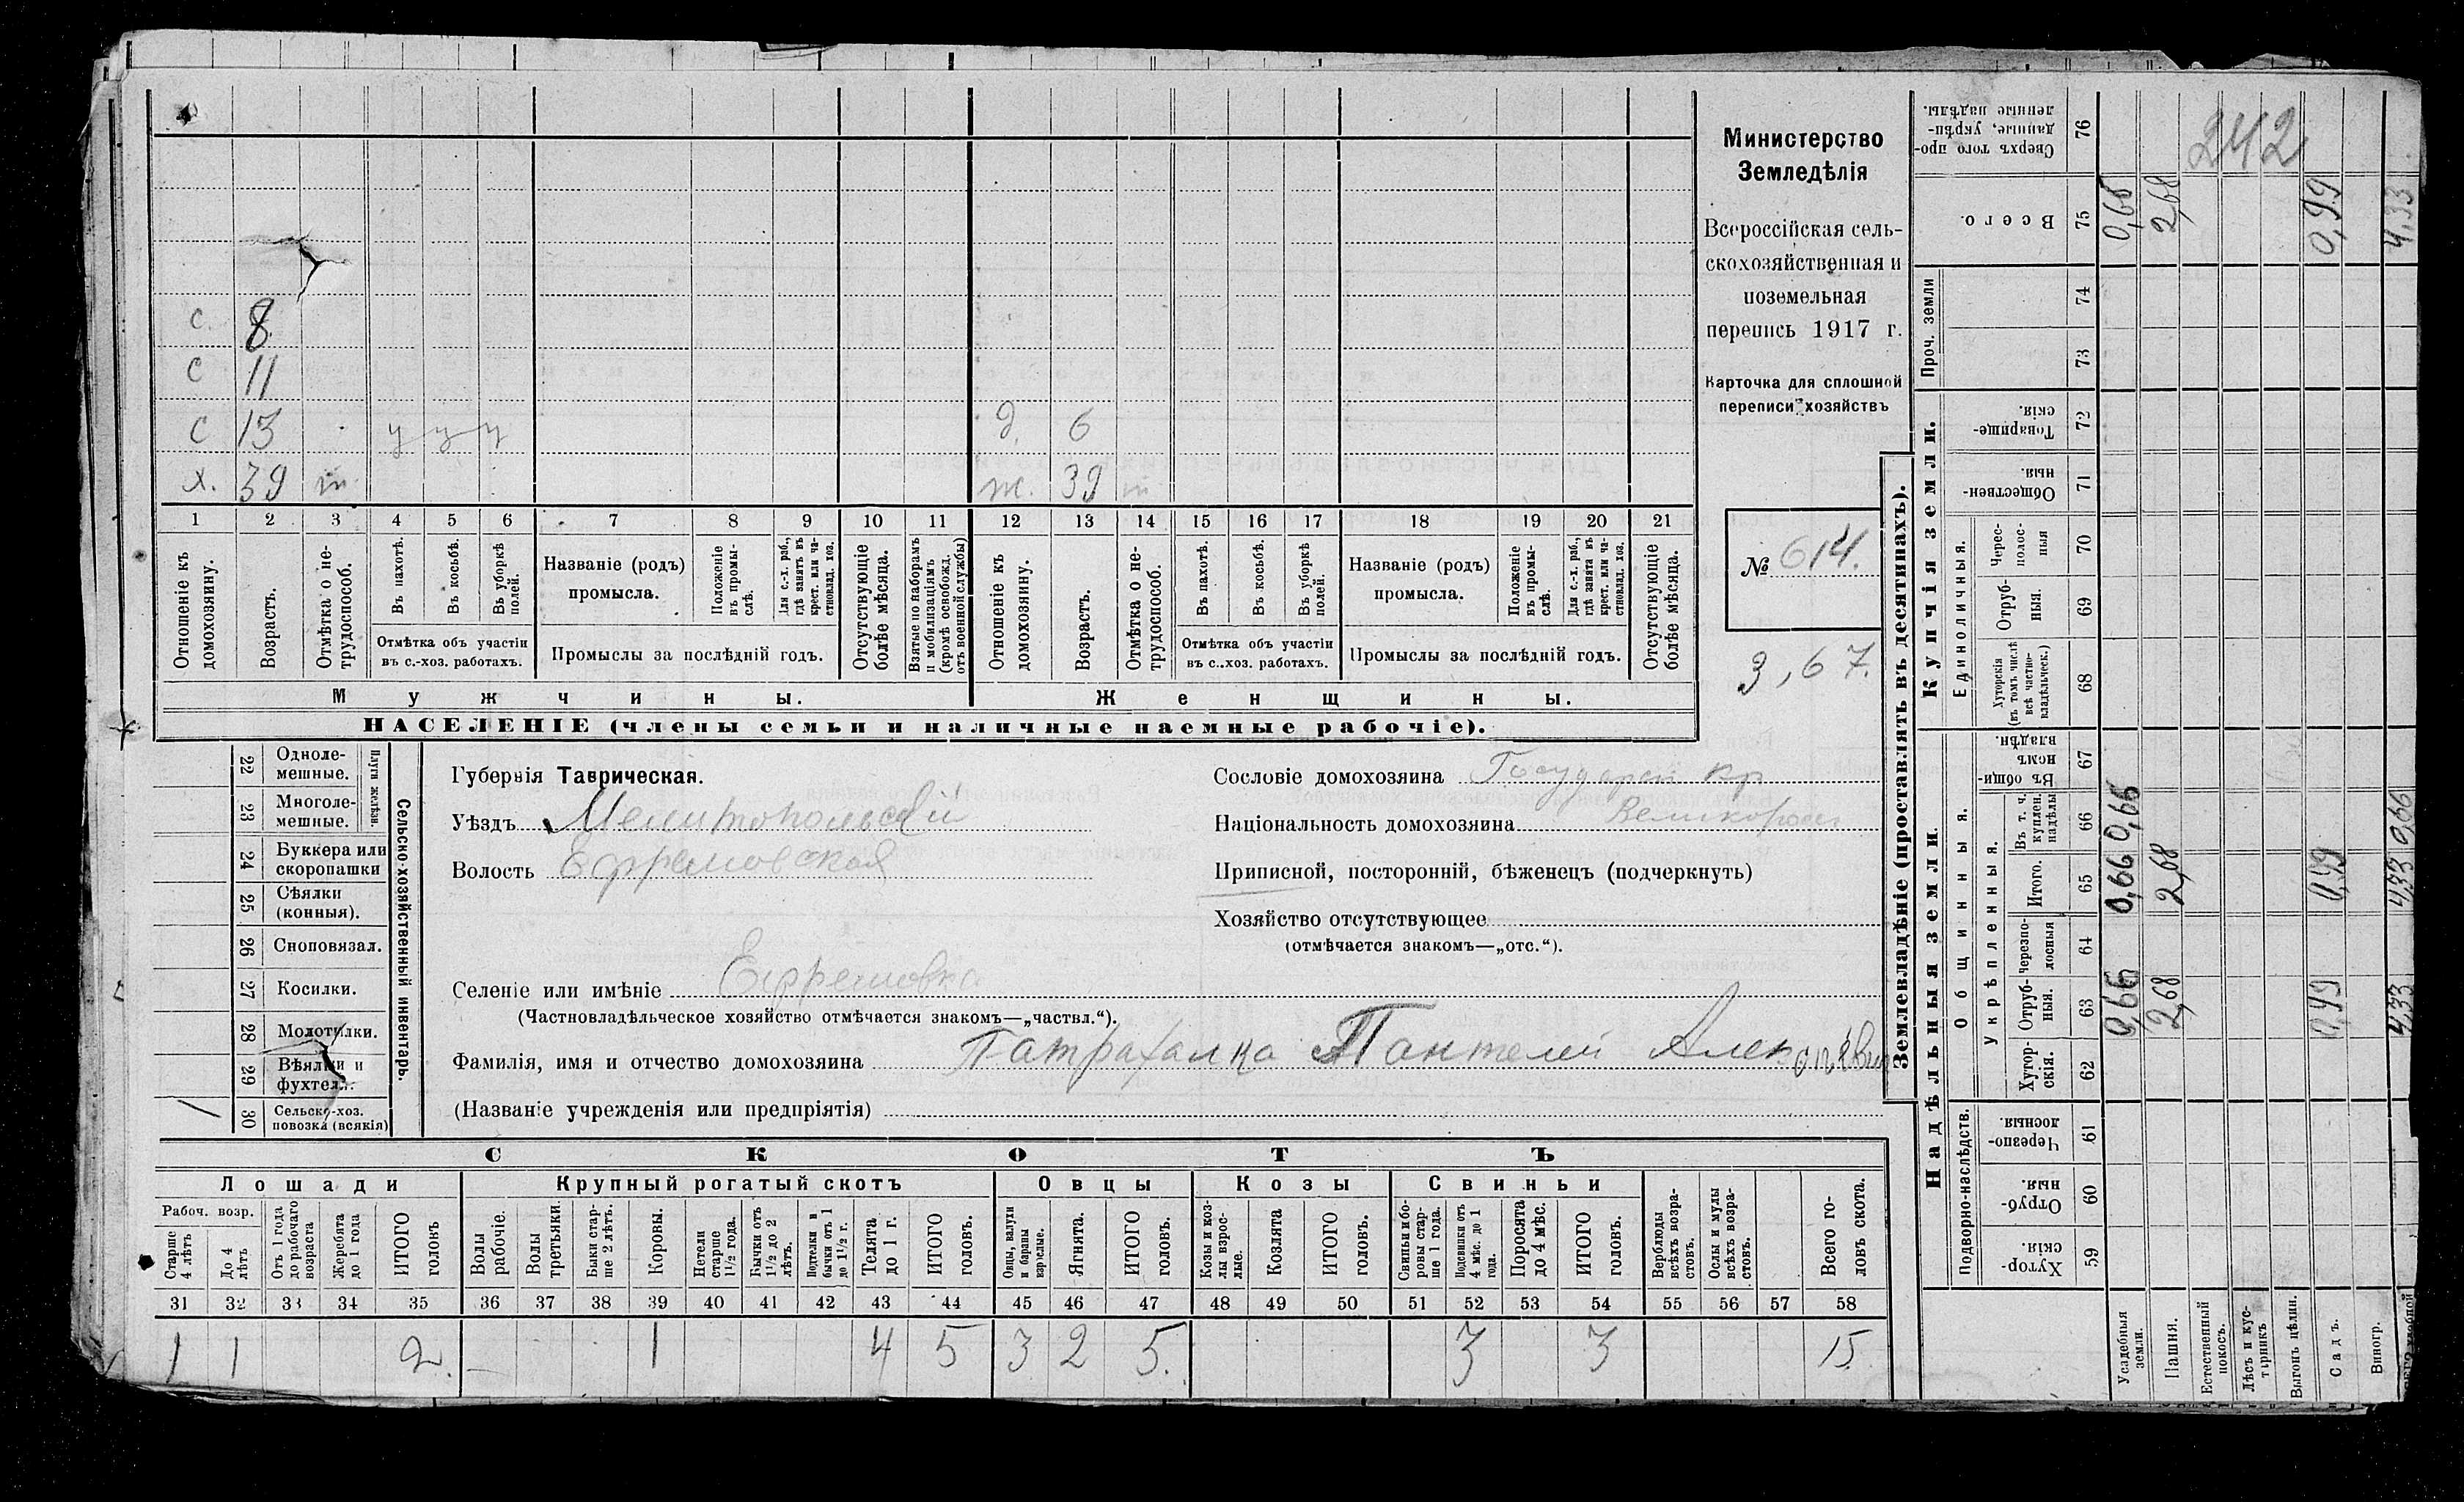 с. 8
с 11
с 13 у у у д. 6
х. 39 ж. 39
1 2 3 4 5 6 7 8 9 10 11 12 13 14 15 16 17 18 19 20 21
Отношеніе къ домохозяину.
Возрастъ.
Отмѣтка о нетрудоспособ.
Въ пахотѣ.
Въ косьбѣ.
Въ уборкѣ полей.
Отмѣтка объ участіи въ с.-хоз. работахъ.
Названіе (родъ) промысла.
Положеніе въ промыслѣ.
Для с.-х. раб., гдѣ занятъ въ крест. или частновлад. хоз.
Промыслы за послѣдній годъ.
Отсутствующіе болѣе мѣсяца.
Взятые по наборамъ и мобилизаціямъ (кромѣ освобожд. отъ военной службы)
Отношеніе къ домохозяину.
Возрастъ.
Отмѣтка о нетрудоспособ.
Въ пахотѣ.
Въ косьбѣ.
Въ уборкѣ полей.
Отмѣтка объ участіи въ с.-хоз. работахъ.
Названіе (родъ) промысла.
Положеніе въ промыслѣ.
Для с.-х. раб., гдѣ занята въ крест. или частновлад. хоз.
Промыслы за послѣдній годъ.
Отсутствующіе болѣе мѣсяца.
Мужчины. Женщины.
НАСЕЛЕНІЕ (члены семьи и наличные наемные рабочіе).
Министерство
Земледѣлія
Всероссійская сель-
скохозяйственная и
поземельная
перепись 1917 г.
Карточка для сплошной
переписи хозяйствъ
№ 614.
3,67.
22 Однолемешные.
23 Многолемешные.
Плуги желѣзн.
24 Буккера или скоропашки
25 Сѣялки (конныя).
26 Сноповязал.
27 Косилки.
28 Молотилки.
29 Вѣялки и фухтел.
1 30 Сельско-хоз. повозка (всякія)
Сельско-хозяйственный инвентарь.
Губернія Таврическая.
Уѣздъ Мелитопольскій
Волость Ефремовская
Селеніе или имѣніе Ефремовка
(Частновладѣльческое хозяйство отмѣчается знакомъ—„частвл.“).
Фамилія, имя и отчество домохозяина Пантелей
(Названіе учрежденія или предпріятія)
Сословіе домохозяина Государст кр
Національность домохозяина Великоросс
Приписной, посторонній, бѣженецъ (подчеркнуть)
Хозяйство отсутствующее
(отмѣчается знакомъ—„отс.“).
СКОТЪ
Лошади Крупный рогатый скотъ Овцы Козы Свиньи
Рабоч. возр.
Старше 4 лѣтъ
До 4 лѣтъ
Отъ 1 года до рабочаго возраста
Жеребята до 1 года
ИТОГО головъ
Волы рабочіе.
Волы третьяки.
Быки старше 2 лѣтъ.
Коровы.
Нетели старше 1½ года.
Бычки отъ 1½ до 2 лѣтъ.
Подтелки и бычки отъ 1 до 1½ г.
Телята до 1 г.
ИТОГО головъ.
Овцы, валухи и бараны взрослые.
Ягнята.
ИТОГО головъ.
Козы и козлы взрослые.
Козлята
ИТОГО головъ.
Свиньи и боровы старше 1 года.
Подсвинки отъ 4 мѣс. до 1 года.
Поросята до 4 мѣс.
ИТОГО головъ.
Верблюды всѣхъ возрастовъ.
Ослы и мулы всѣхъ возрастовъ.
Всего головъ скота.
31 32 33 34 35 36 37 38 39 40 41 42 43 44 45 46 47 48 49 50 51 52 53 54 55 56 57 58
1 1 2. 1 4 5 3 2 5. 3 3 15
Землевладѣніе (проставлять въ десятинахъ).
Купчія земли.
Надѣльныя земли.
Сверхъ того проданные, укрѣпленные надѣлы. 76
242
Всего. 75 0,66 2,68 0,99 4,33
Проч. земли 74 73
Товарищескія. 72
Общественныя. 71
Единоличныя.
Чересполосныя 70
Отрубныя. 69
Хуторскія (въ томъ числѣ всѣ частновладѣльческ.) 68
Общинныя.
Въ общинномъ владѣн. 67
Укрѣпленныя.
Въ т. ч. куплен. надѣлы 66 0,66 0,66
Итого. 65 0,66 2,68 0,99 4,33
Черезполосныя 64
Отрубныя. 63 0,66 2,68 0,99 4,33
Хуторскія. 62
Подворно-наслѣдств.
Черезполосныя 61
Отрубныя. 60
Хуторскія. 59
Усадебныя земли.
Пашня.
Естественный покосъ.
Лѣсъ и кустарникъ
Выгонъ цѣлин.
Садъ.
Виногр.